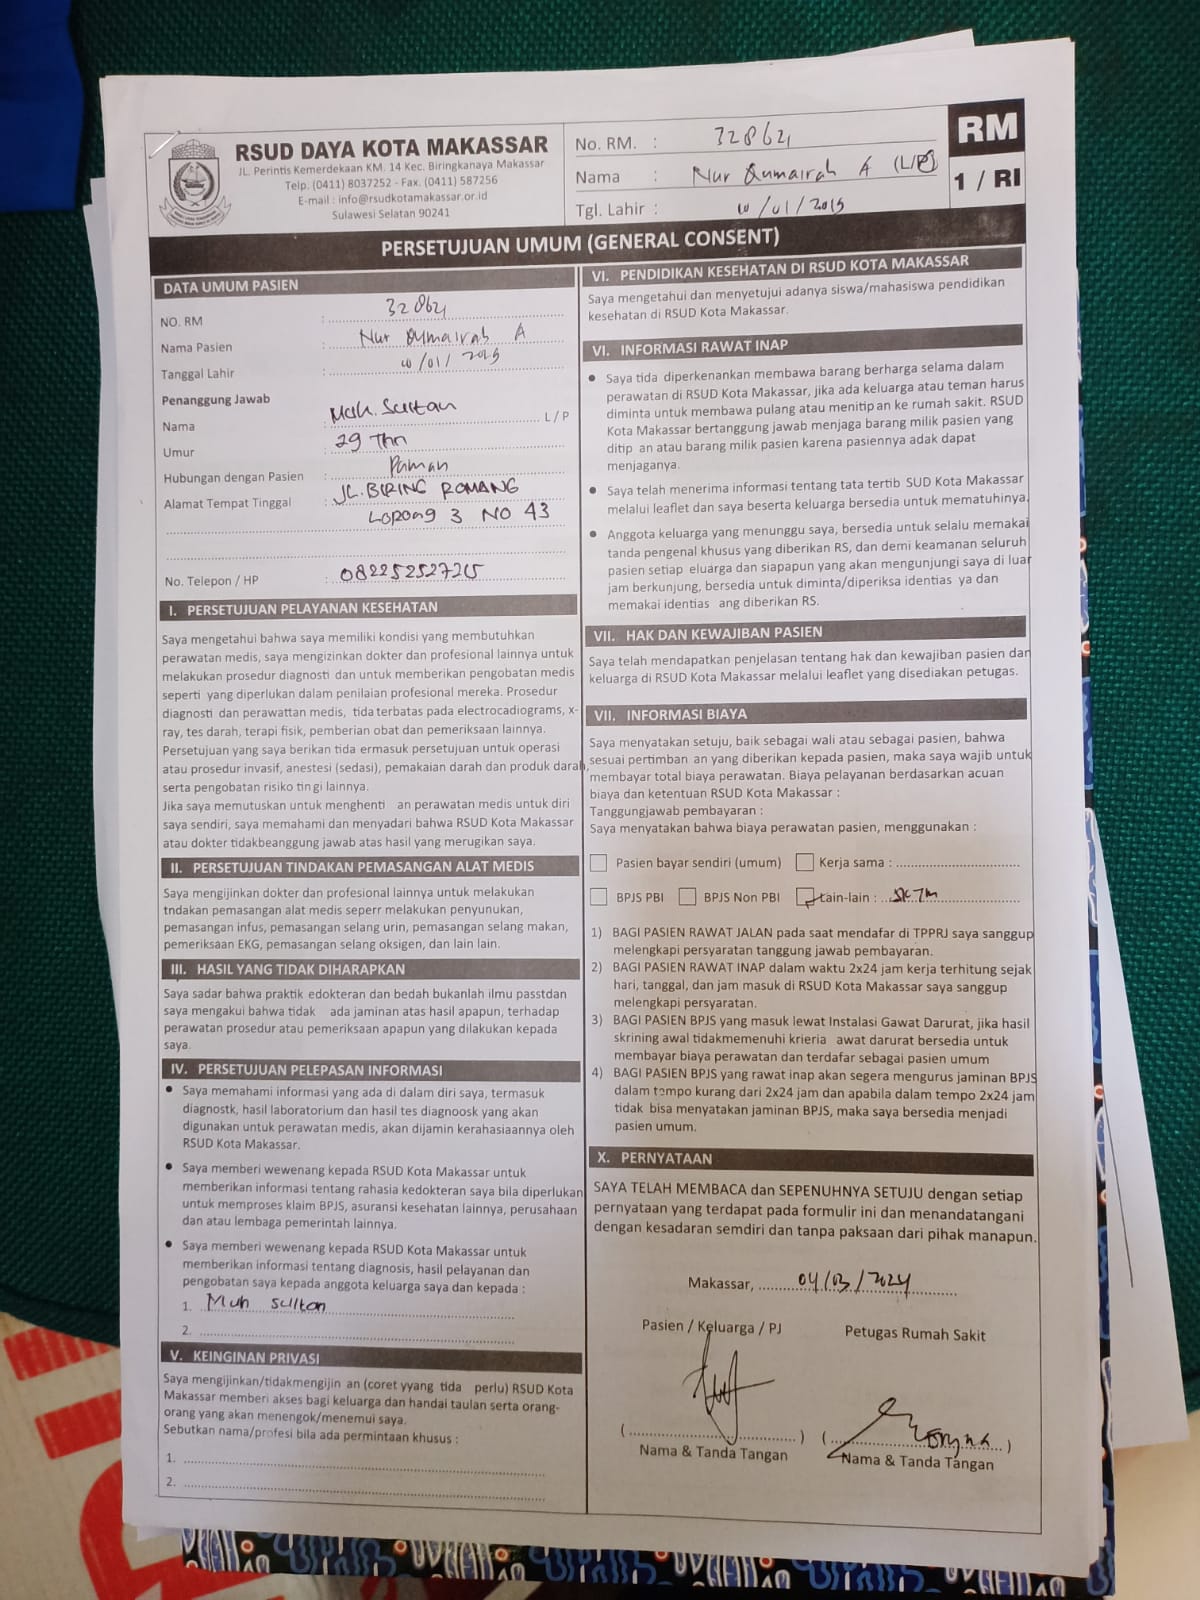 RSUD DAYA KOTA MAKASSAR
JL. Perintis Kemerdekaan KM. 14 Kec. Biringkanaya Makassar
Telp. (0411) 8037252 - Fax. (0411) 587256
E-mail : info@rsudkotamakassar.or.id
Sulawesi Selatan 90241
No. RM. :
Nama : Nur Qumairah A (L/P)
Tgl. Lahir :
RM
1 / RI
PERSETUJUAN UMUM (GENERAL CONSENT)
DATA UMUM PASIEN
NO. RM :
Nama Pasien : Nur Qumairah A
Tanggal Lahir :
Penanggung Jawab
Nama : Muh. Sultan L / P
Umur : 29 Thn
Hubungan dengan Pasien : Paman
Alamat Tempat Tinggal : JL. BIRING ROMANG
Lorong 3 NO 43
No. Telepon / HP :
I. PERSETUJUAN PELAYANAN KESEHATAN
Saya mengetahui bahwa saya memiliki kondisi yang membutuhkan
perawatan medis, saya mengizinkan dokter dan profesional lainnya untuk
melakukan prosedur diagnosti dan untuk memberikan pengobatan medis
seperti yang diperlukan dalam penilaian profesional mereka. Prosedur
diagnosti dan perawattan medis, tida terbatas pada electrocadiograms, x-
ray, tes darah, terapi fisik, pemberian obat dan pemeriksaan lainnya.
Persetujuan yang saya berikan tida ermasuk persetujuan untuk operasi
atau prosedur invasif, anestesi (sedasi), pemakaian darah dan produk darah,
serta pengobatan risiko tin gi lainnya.
Jika saya memutuskan untuk menghenti an perawatan medis untuk diri
saya sendiri, saya memahami dan menyadari bahwa RSUD Kota Makassar
atau dokter tidakbeanggung jawab atas hasil yang merugikan saya.
II. PERSETUJUAN TINDAKAN PEMASANGAN ALAT MEDIS
Saya mengijinkan dokter dan profesional lainnya untuk melakukan
tndakan pemasangan alat medis seperr melakukan penyunukan,
pemasangan infus, pemasangan selang urin, pemasangan selang makan,
pemeriksaan EKG, pemasangan selang oksigen, dan lain lain.
III. HASIL YANG TIDAK DIHARAPKAN
Saya sadar bahwa praktik edokteran dan bedah bukanlah ilmu passtdan
saya mengakui bahwa tidak ada jaminan atas hasil apapun, terhadap
perawatan prosedur atau pemeriksaan apapun yang dilakukan kepada
saya.
IV. PERSETUJUAN PELEPASAN INFORMASI
• Saya memahami informasi yang ada di dalam diri saya, termasuk
diagnostk, hasil laboratorium dan hasil tes diagnoosk yang akan
digunakan untuk perawatan medis, akan dijamin kerahasiaannya oleh
RSUD Kota Makassar.
• Saya memberi wewenang kepada RSUD Kota Makassar untuk
memberikan informasi tentang rahasia kedokteran saya bila diperlukan
untuk memproses klaim BPJS, asuransi kesehatan lainnya, perusahaan
dan atau lembaga pemerintah lainnya.
• Saya memberi wewenang kepada RSUD Kota Makassar untuk
memberikan informasi tentang diagnosis, hasil pelayanan dan
pengobatan saya kepada anggota keluarga saya dan kepada :
1. Muh Sultan
2.
V. KEINGINAN PRIVASI
Saya mengijinkan/tidakmengijin an (coret yyang tida perlu) RSUD Kota
Makassar memberi akses bagi keluarga dan handai taulan serta orang-
orang yang akan menengok/menemui saya.
Sebutkan nama/profesi bila ada permintaan khusus :
1.
2.
VI. PENDIDIKAN KESEHATAN DI RSUD KOTA MAKASSAR
Saya mengetahui dan menyetujui adanya siswa/mahasiswa pendidikan
kesehatan di RSUD Kota Makassar.
VI. INFORMASI RAWAT INAP
• Saya tida diperkenankan membawa barang berharga selama dalam
perawatan di RSUD Kota Makassar, jika ada keluarga atau teman harus
diminta untuk membawa pulang atau menitip an ke rumah sakit. RSUD
Kota Makassar bertanggung jawab menjaga barang milik pasien yang
ditip an atau barang milik pasien karena pasiennya adak dapat
menjaganya.
• Saya telah menerima informasi tentang tata tertib SUD Kota Makassar
melalui leaflet dan saya beserta keluarga bersedia untuk mematuhinya.
• Anggota keluarga yang menunggu saya, bersedia untuk selalu memakai
tanda pengenal khusus yang diberikan RS, dan demi keamanan seluruh
pasien setiap eluarga dan siapapun yang akan mengunjungi saya di luar
jam berkunjung, bersedia untuk diminta/diperiksa identias ya dan
memakai identias ang diberikan RS.
VII. HAK DAN KEWAJIBAN PASIEN
Saya telah mendapatkan penjelasan tentang hak dan kewajiban pasien dan
keluarga di RSUD Kota Makassar melalui leaflet yang disediakan petugas.
VII. INFORMASI BIAYA
Saya menyatakan setuju, baik sebagai wali atau sebagai pasien, bahwa
sesuai pertimban an yang diberikan kepada pasien, maka saya wajib untuk
membayar total biaya perawatan. Biaya pelayanan berdasarkan acuan
biaya dan ketentuan RSUD Kota Makassar :
Tanggungjawab pembayaran :
Saya menyatakan bahwa biaya perawatan pasien, menggunakan :
Pasien bayar sendiri (umum) Kerja sama :
BPJS PBI BPJS Non PBI Lain-lain : SKTM
1) BAGI PASIEN RAWAT JALAN pada saat mendafar di TPPRJ saya sanggup
melengkapi persyaratan tanggung jawab pembayaran.
2) BAGI PASIEN RAWAT INAP dalam waktu 2x24 jam kerja terhitung sejak
hari, tanggal, dan jam masuk di RSUD Kota Makassar saya sanggup
melengkapi persyaratan.
3) BAGI PASIEN BPJS yang masuk lewat Instalasi Gawat Darurat, jika hasil
skrining awal tidakmemenuhi krieria awat darurat bersedia untuk
membayar biaya perawatan dan terdafar sebagai pasien umum
4) BAGI PASIEN BPJS yang rawat inap akan segera mengurus jaminan BPJS
dalam tempo kurang dari 2x24 jam dan apabila dalam tempo 2x24 jam
tidak bisa menyatakan jaminan BPJS, maka saya bersedia menjadi
pasien umum.
X. PERNYATAAN
SAYA TELAH MEMBACA dan SEPENUHNYA SETUJU dengan setiap
pernyataan yang terdapat pada formulir ini dan menandatangani
dengan kesadaran semdiri dan tanpa paksaan dari pihak manapun.
Makassar, 04/03/2024
Pasien / Keluarga / PJ Petugas Rumah Sakit
Nama & Tanda Tangan Nama & Tanda Tangan